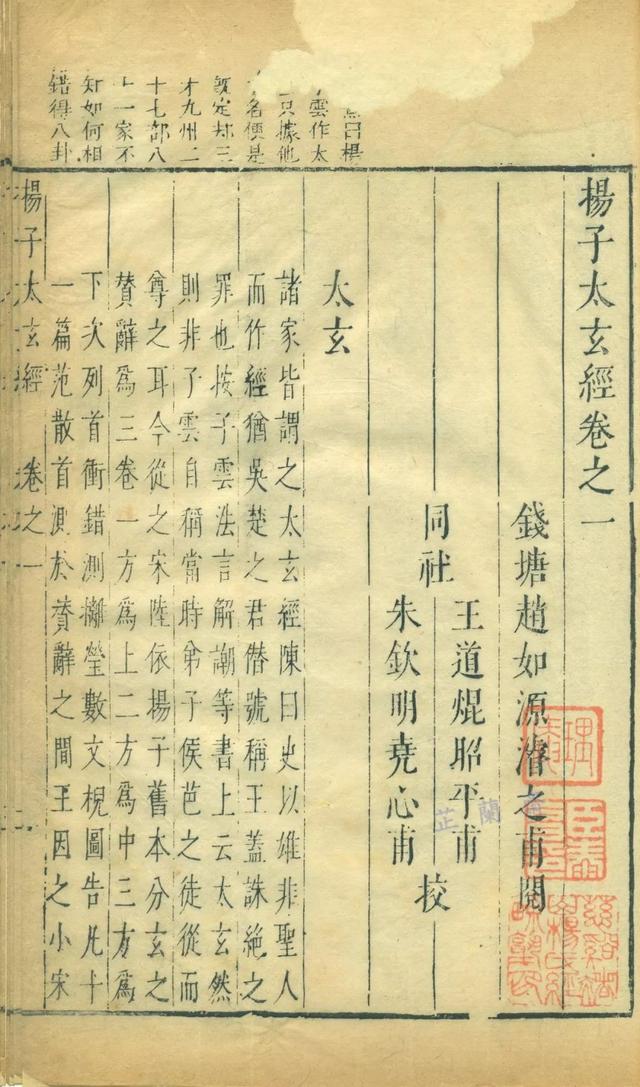 揚子太玄經卷之一
錢塘趙如源濬之甫閱
同社
王道焜昭平甫
朱欽明堯心甫
校
太玄
諸家皆謂之太玄經陳曰史以雄非聖人
而作經猶吳楚之君僭號稱王蓋誅絕之
罪也按子雲法言解嘲等書上云太玄然
則非子雲自稱當時弟子侯芭之徒從而
尊之耳今從之宋陸依揚子舊本分玄之
贊辭為三卷一方為上二方為中三方為
下次列首衝錯測攡瑩數文棿圖告凡十
一篇范散首測於贊辭之間王因之小宋
揚子太玄經 卷之一
曰楊
雲作太
只據他
名便是
數定却三
才九州二
十七部八
十一家不
知如何相
錯得八卦
芷蘭